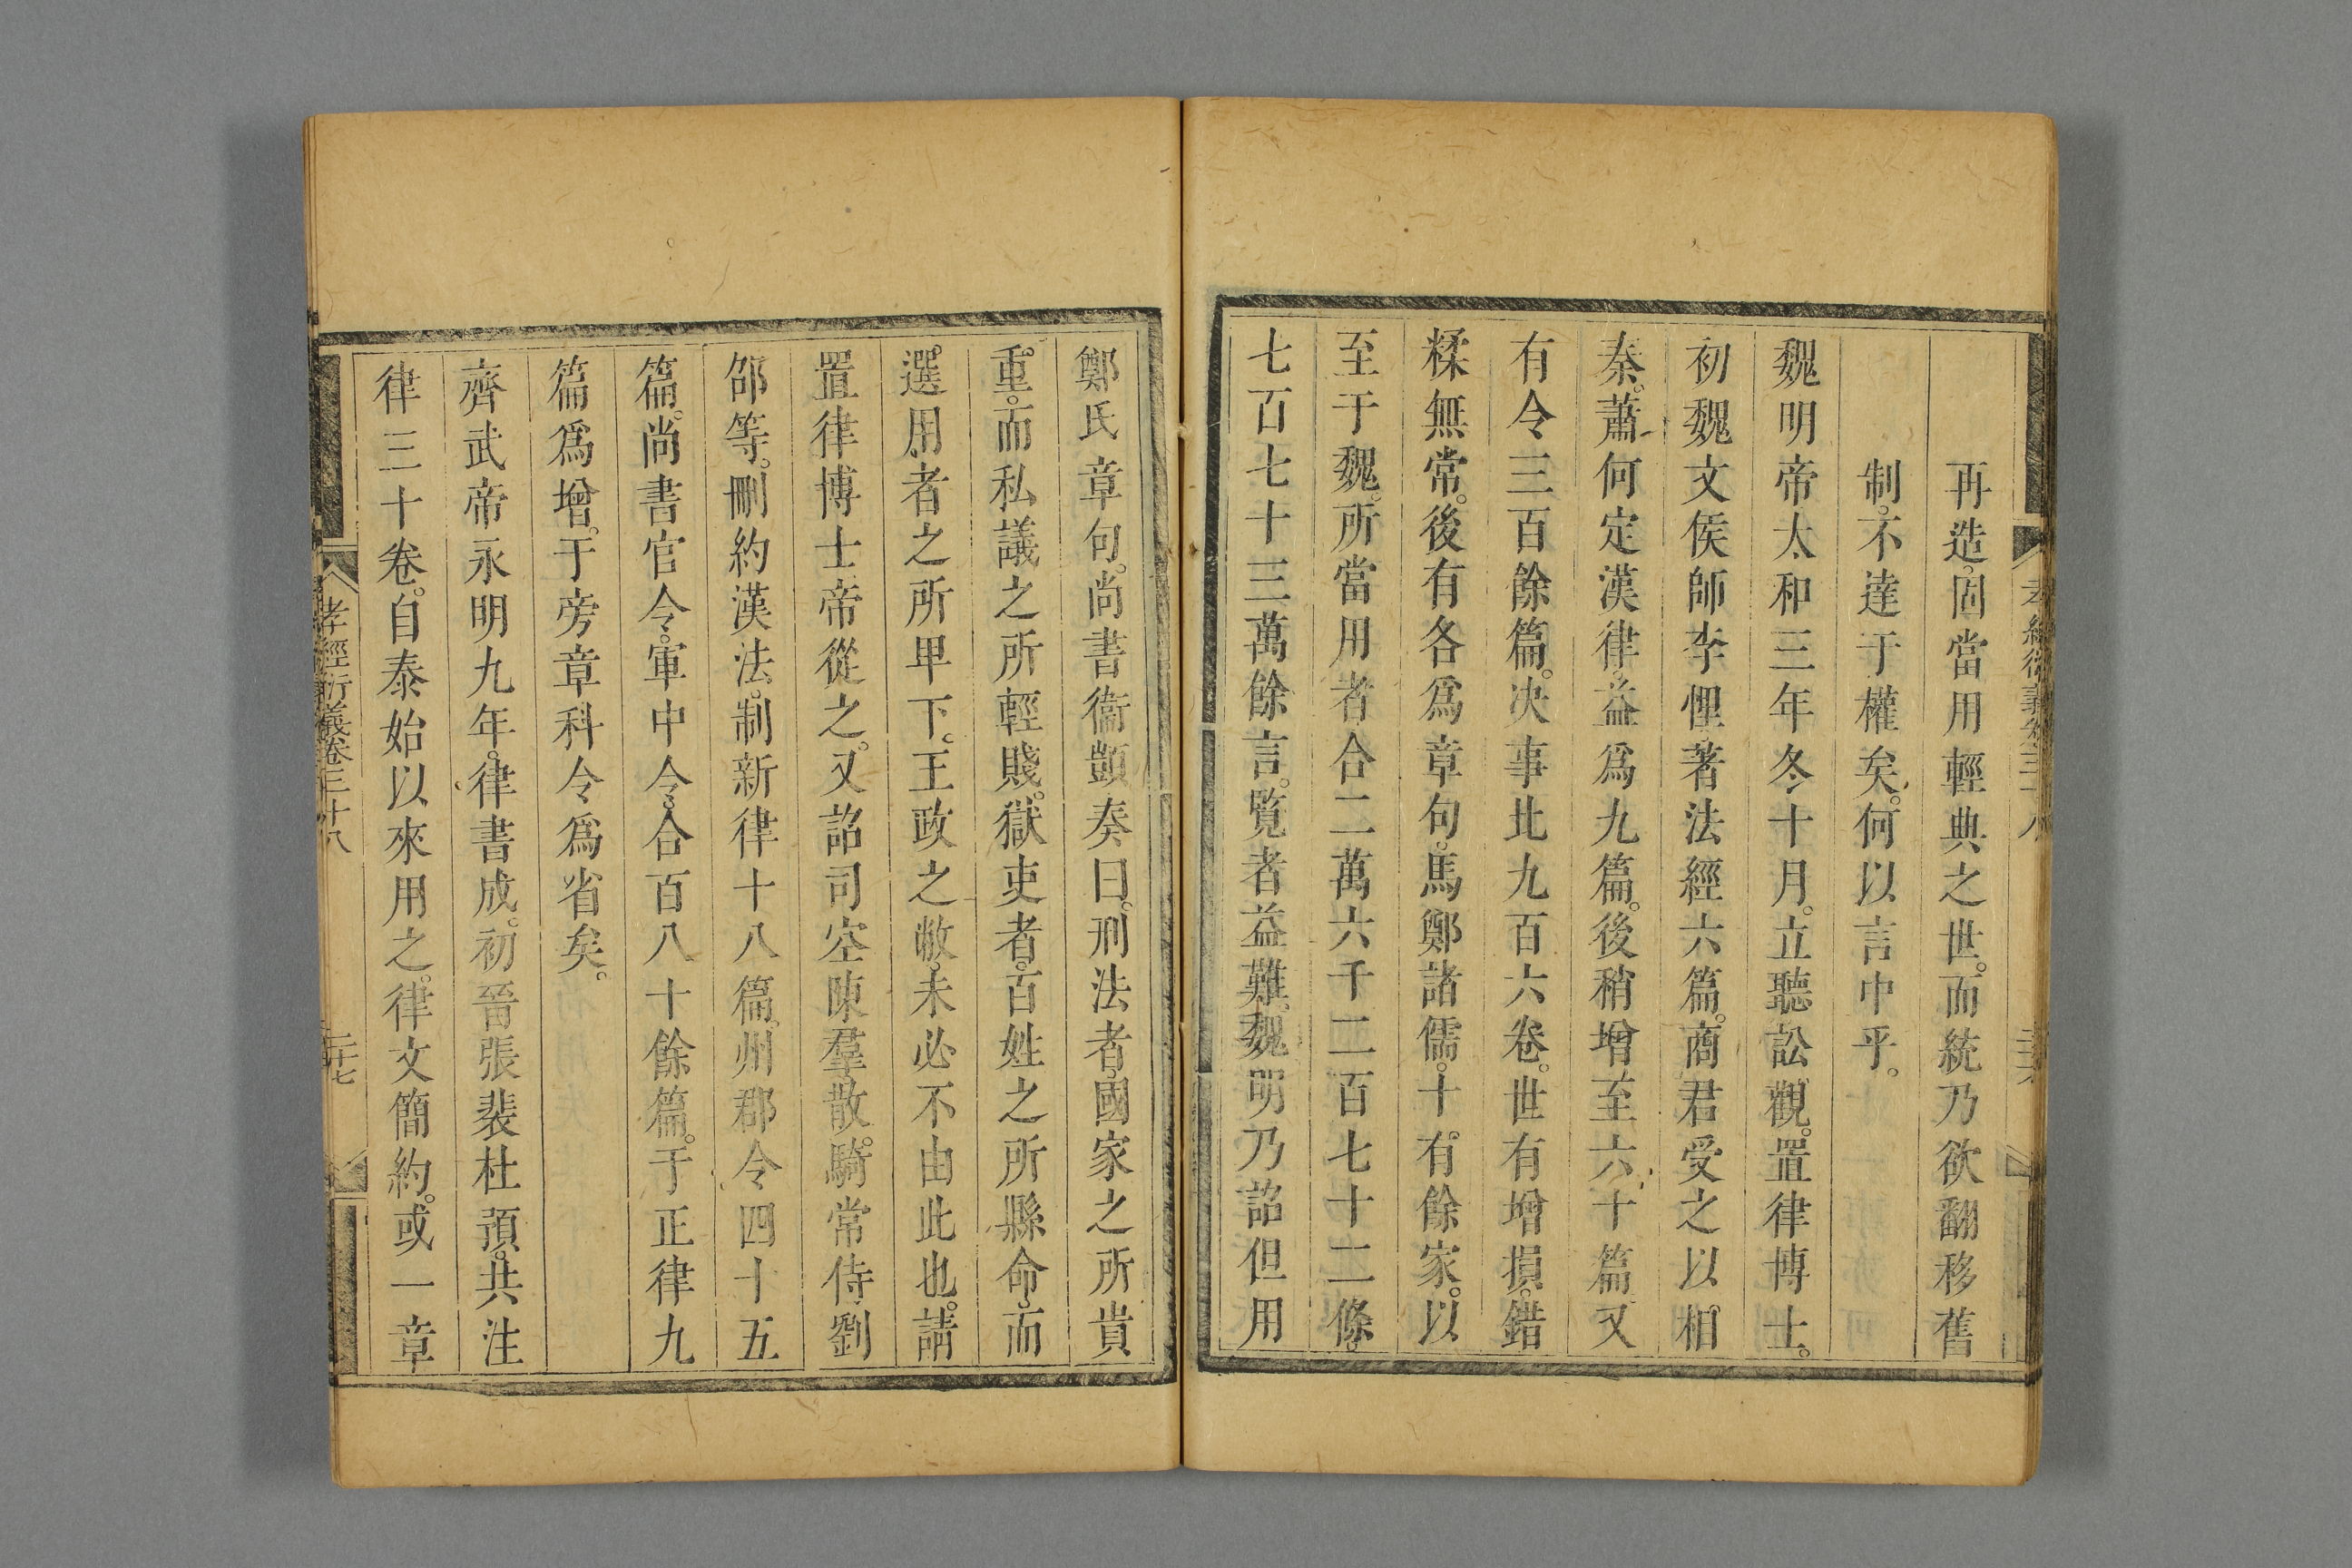 再造。固當用輕典之世。而統乃欲翻移舊
制。不達于權矣。何以言中乎。
魏明帝太和三年冬十月。立聽訟觀。置律博士。
初魏文侯師李悝著法經六篇。商君受之以相
秦。蕭何定漢律。益爲九篇。後稍增至六十篇。又
有令三百餘篇。决事比九百六卷。世有增損。錯
糅無常。後有各爲章句。馬鄭諸儒。十有餘家。以
至于魏。所當用者合二萬六千二百七十二條。
七百七十三萬餘言。覽者益難。魏明乃詔但用
鄭氏章句。尚書衞顗奏曰。刑法者。國家之所貴
重。而私議之所輕賤。獄吏者。百姓之所縣命。而
選用者之所卑下。王政之敝。未必不由此也。請
置律博士。帝從之。又詔司空陳羣。散騎常侍劉
邵等。刪約漢法。制新律十八篇。州郡令四十五
篇。尚書官令。軍中令。合百八十餘篇。于正律九
篇爲增。于旁章科令爲省矣。
齊武帝永明九年。律書成。初晉張裴杜預。共注
律三十卷。自泰始以來用之。律文簡約。或一章
孝經衍義卷三十八
二十七